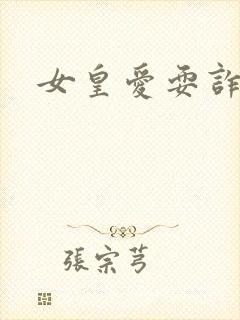 女皇愛耍詐
張宗芎